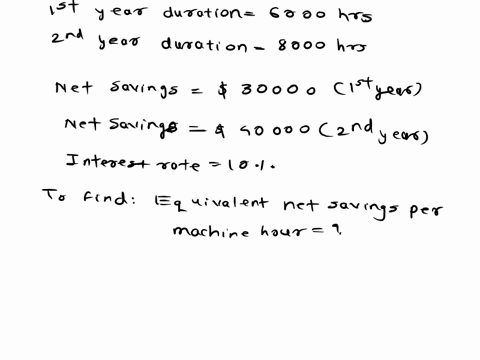 1st year duration= 6000 hrs
2nd year duration - 8000 hrs
Net savings = $ 30000 (1st year)
Net Savings = $ 40000 (2nd year)
Interest rate = 10%.
To find: Equivalent net savings per
machine hour = ?